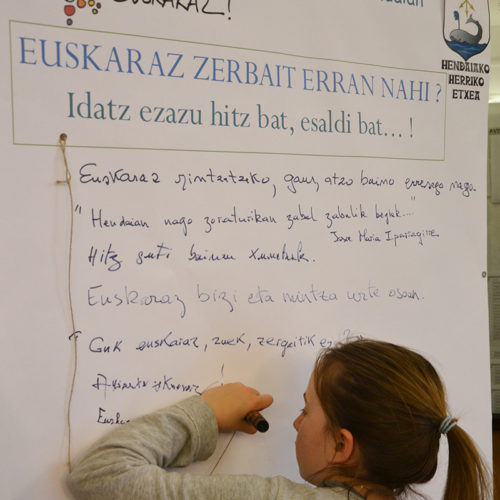 EUSKARAZ!
HENDAIAKO
HERRIKO
ETXEA
EUSKARAZ ZERBAIT ERRAN NAHI ?
Idatz ezazu hitz bat, esaldi bat... !
Euskaraz mintzatzeko, gaur, atzo baino errexago nago.
"Hendaian nago zoraturikan zabal zabalik begiak...."
Jose Maria Iparragirre
Hitz guti bainan
Euskaraz bizi eta mintza urte osoan.
"Guk euskaraz, zuek, zergatik ez